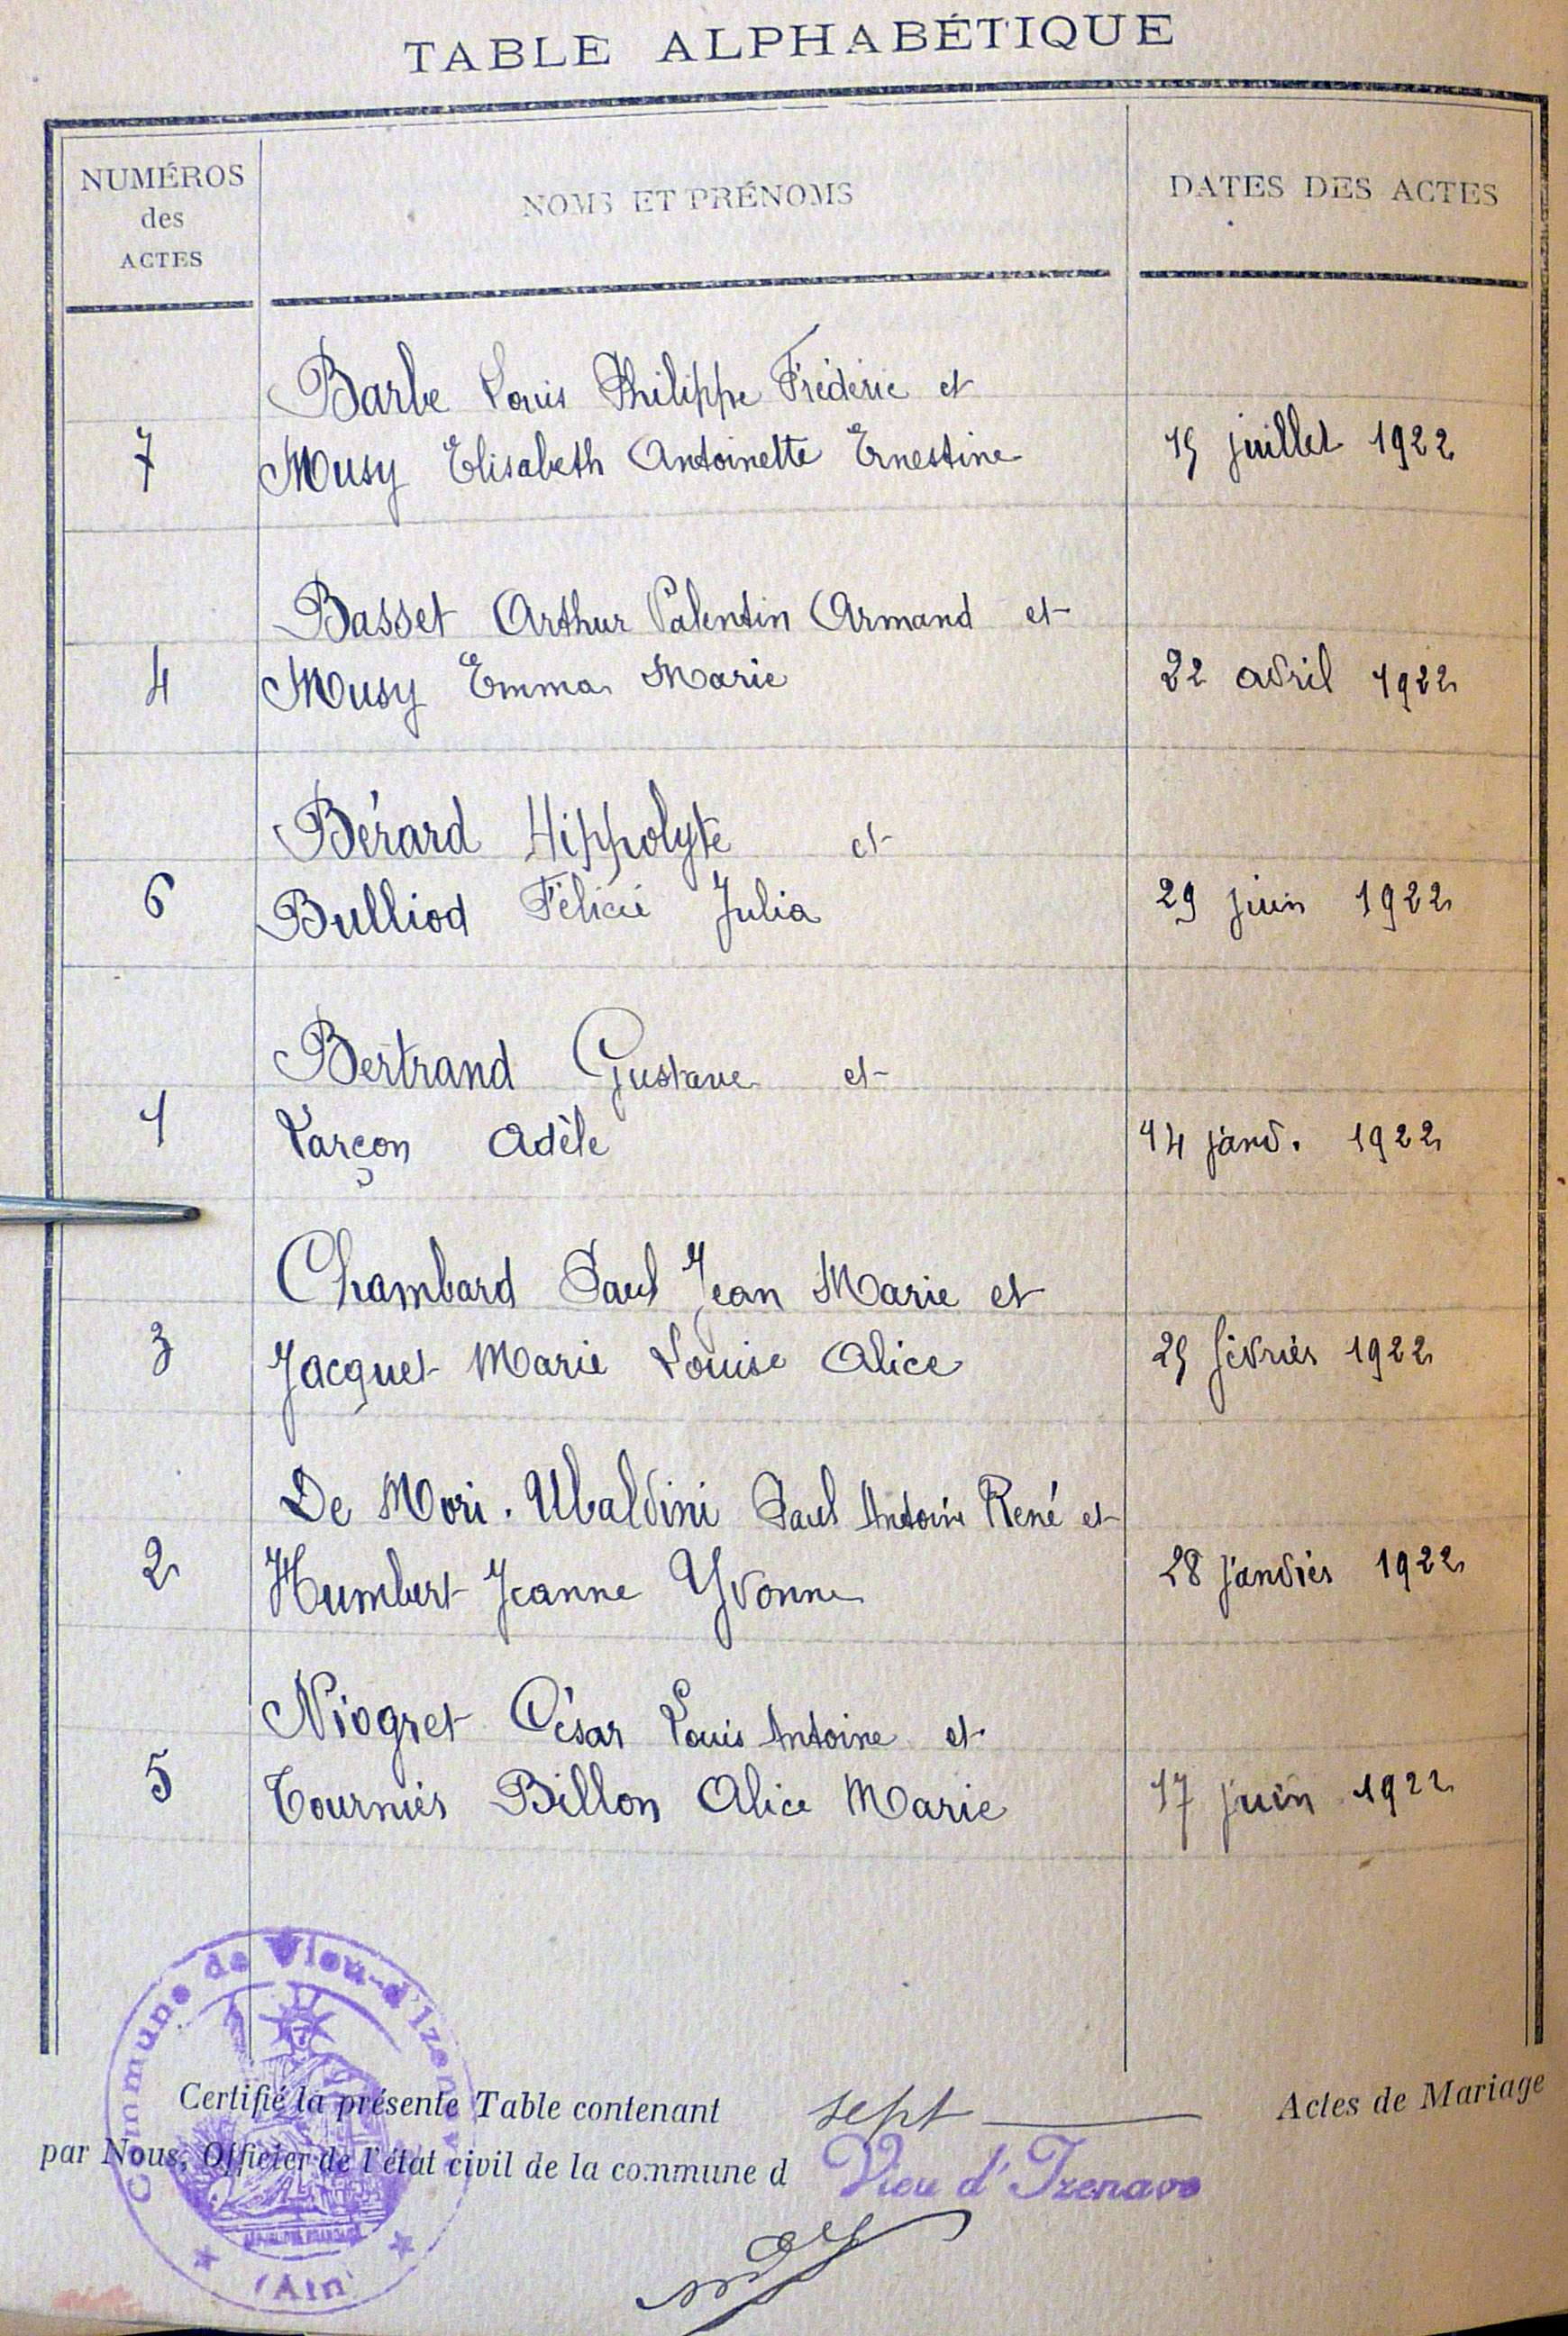 TABLE ALPHABÉTIQUE
NUMÉROS
des
ACTES
NOMS ET PRÉNOMS
DATES DES ACTES
Barbe Louis Philippe Fréderic et
7 Musy Elisabeth Antoinette Ernestine 15 juillet 1922
Basset Arthur Valentin Armand et
4 Musy Emma Marie 22 avril 1922
Bérard Hippolyte et
6 Bulliod Félicie Julia 29 juin 1922
Bertrand Gustave et
1 Larçon Adèle 14 janv. 1922
Chambard Paul Jean Marie et
3 Jacquet Marie Louise Alice 25 février 1922
De Mori. Ubaldini Paul Antoine René et
2 Humbert Jeanne Yvonne 28 janvier 1922
Niogret César Louis Antoine et
5 Tournier Billon Alice Marie 17 juin 1922
Commune de Vieu-d'Izen
(Ain)
Certifié la présente Table contenant sept Actes de Mariage
par Nous, Officier de l'état civil de la commune d Vieu d'Izenave